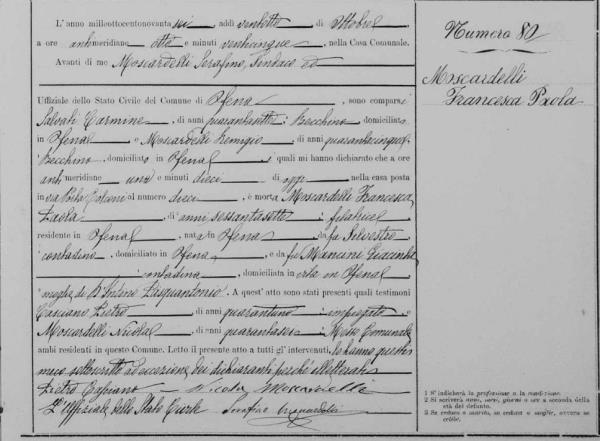 L'anno milleottocentonovanta sei, addì ventotto di Ottobre
a ore antimeridiane otto e minuti venticinque, nella Casa Comunale.
Avanti di me Moscardelli Serafino, Sindaco ed
Uffiziale dello Stato Civile del Comune di Ofena, sono comparsi
Salvati Carmine, di anni quarantasette, Becchino domiciliato
in Ofena, e Moscardelli Remigio, di anni quarantacinque
Becchino, domiciliato in Ofena, i quali mi hanno dichiarato che a ore
antimeridiane una e minuti dieci di oggi, nella casa posta
in via Porta al numero dieci, è morta Moscardelli Francesca
Paola, di anni sessantasette, filatrice
residente in Ofena, nata in Ofena, da fu Silvestro
contadino, domiciliato in Ofena, e da fu Mancini Giacinta
contadina, domiciliata in vita in Ofena
moglie di D'Antonio Pasquantonio. A quest'atto sono stati presenti quali testimoni
Casciano Pietro, di anni quarantuno, impiegato, e
Moscardelli Nicola, di anni quarantasei, Messo Comunale
ambi residenti in questo Comune. Letto il presente atto a tutti gl'intervenuti, lo hanno questi
meco sottoscritto ad eccezione dei dichiaranti perché illetterati
Pietro Casciano Nicola Moscardelli
L'Uffiziale dello Stato Civile Serafino Moscardelli
Numero 82
Moscardelli
Francesca Paola
1 S'indicherà la professione o la condizione.
2 Si scriverà anni, mesi, giorni o ore a seconda della
età del defunto.
3 Se vedova o marito, se vedova o moglie, ovvero se
celibe.